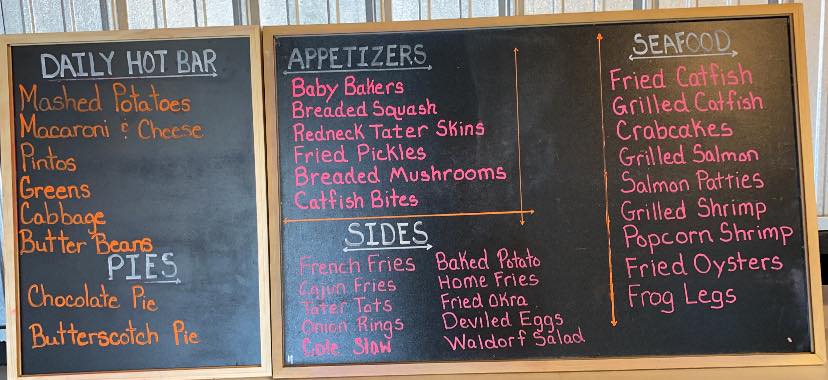 DAILY HOT BAR
Mashed Potatoes
Macaroni & Cheese
Pintos
Greens
Cabbage
Butter Beans
PIES
Chocolate Pie
Butterscotch Pie
APPETIZERS
Baby Bakers
Breaded Squash
Redneck Tater Skins
Fried Pickles
Breaded Mushrooms
Catfish Bites
SIDES
French Fries
Cajun Fries
Tater Tots
Onion Rings
Cole Slaw
Baked Potato
Home Fries
Fried Okra
Deviled Eggs
Waldorf Salad
SEAFOOD
Fried Catfish
Grilled Catfish
Crabcakes
Grilled Salmon
Salmon Patties
Grilled Shrimp
Popcorn Shrimp
Fried Oysters
Frog Legs